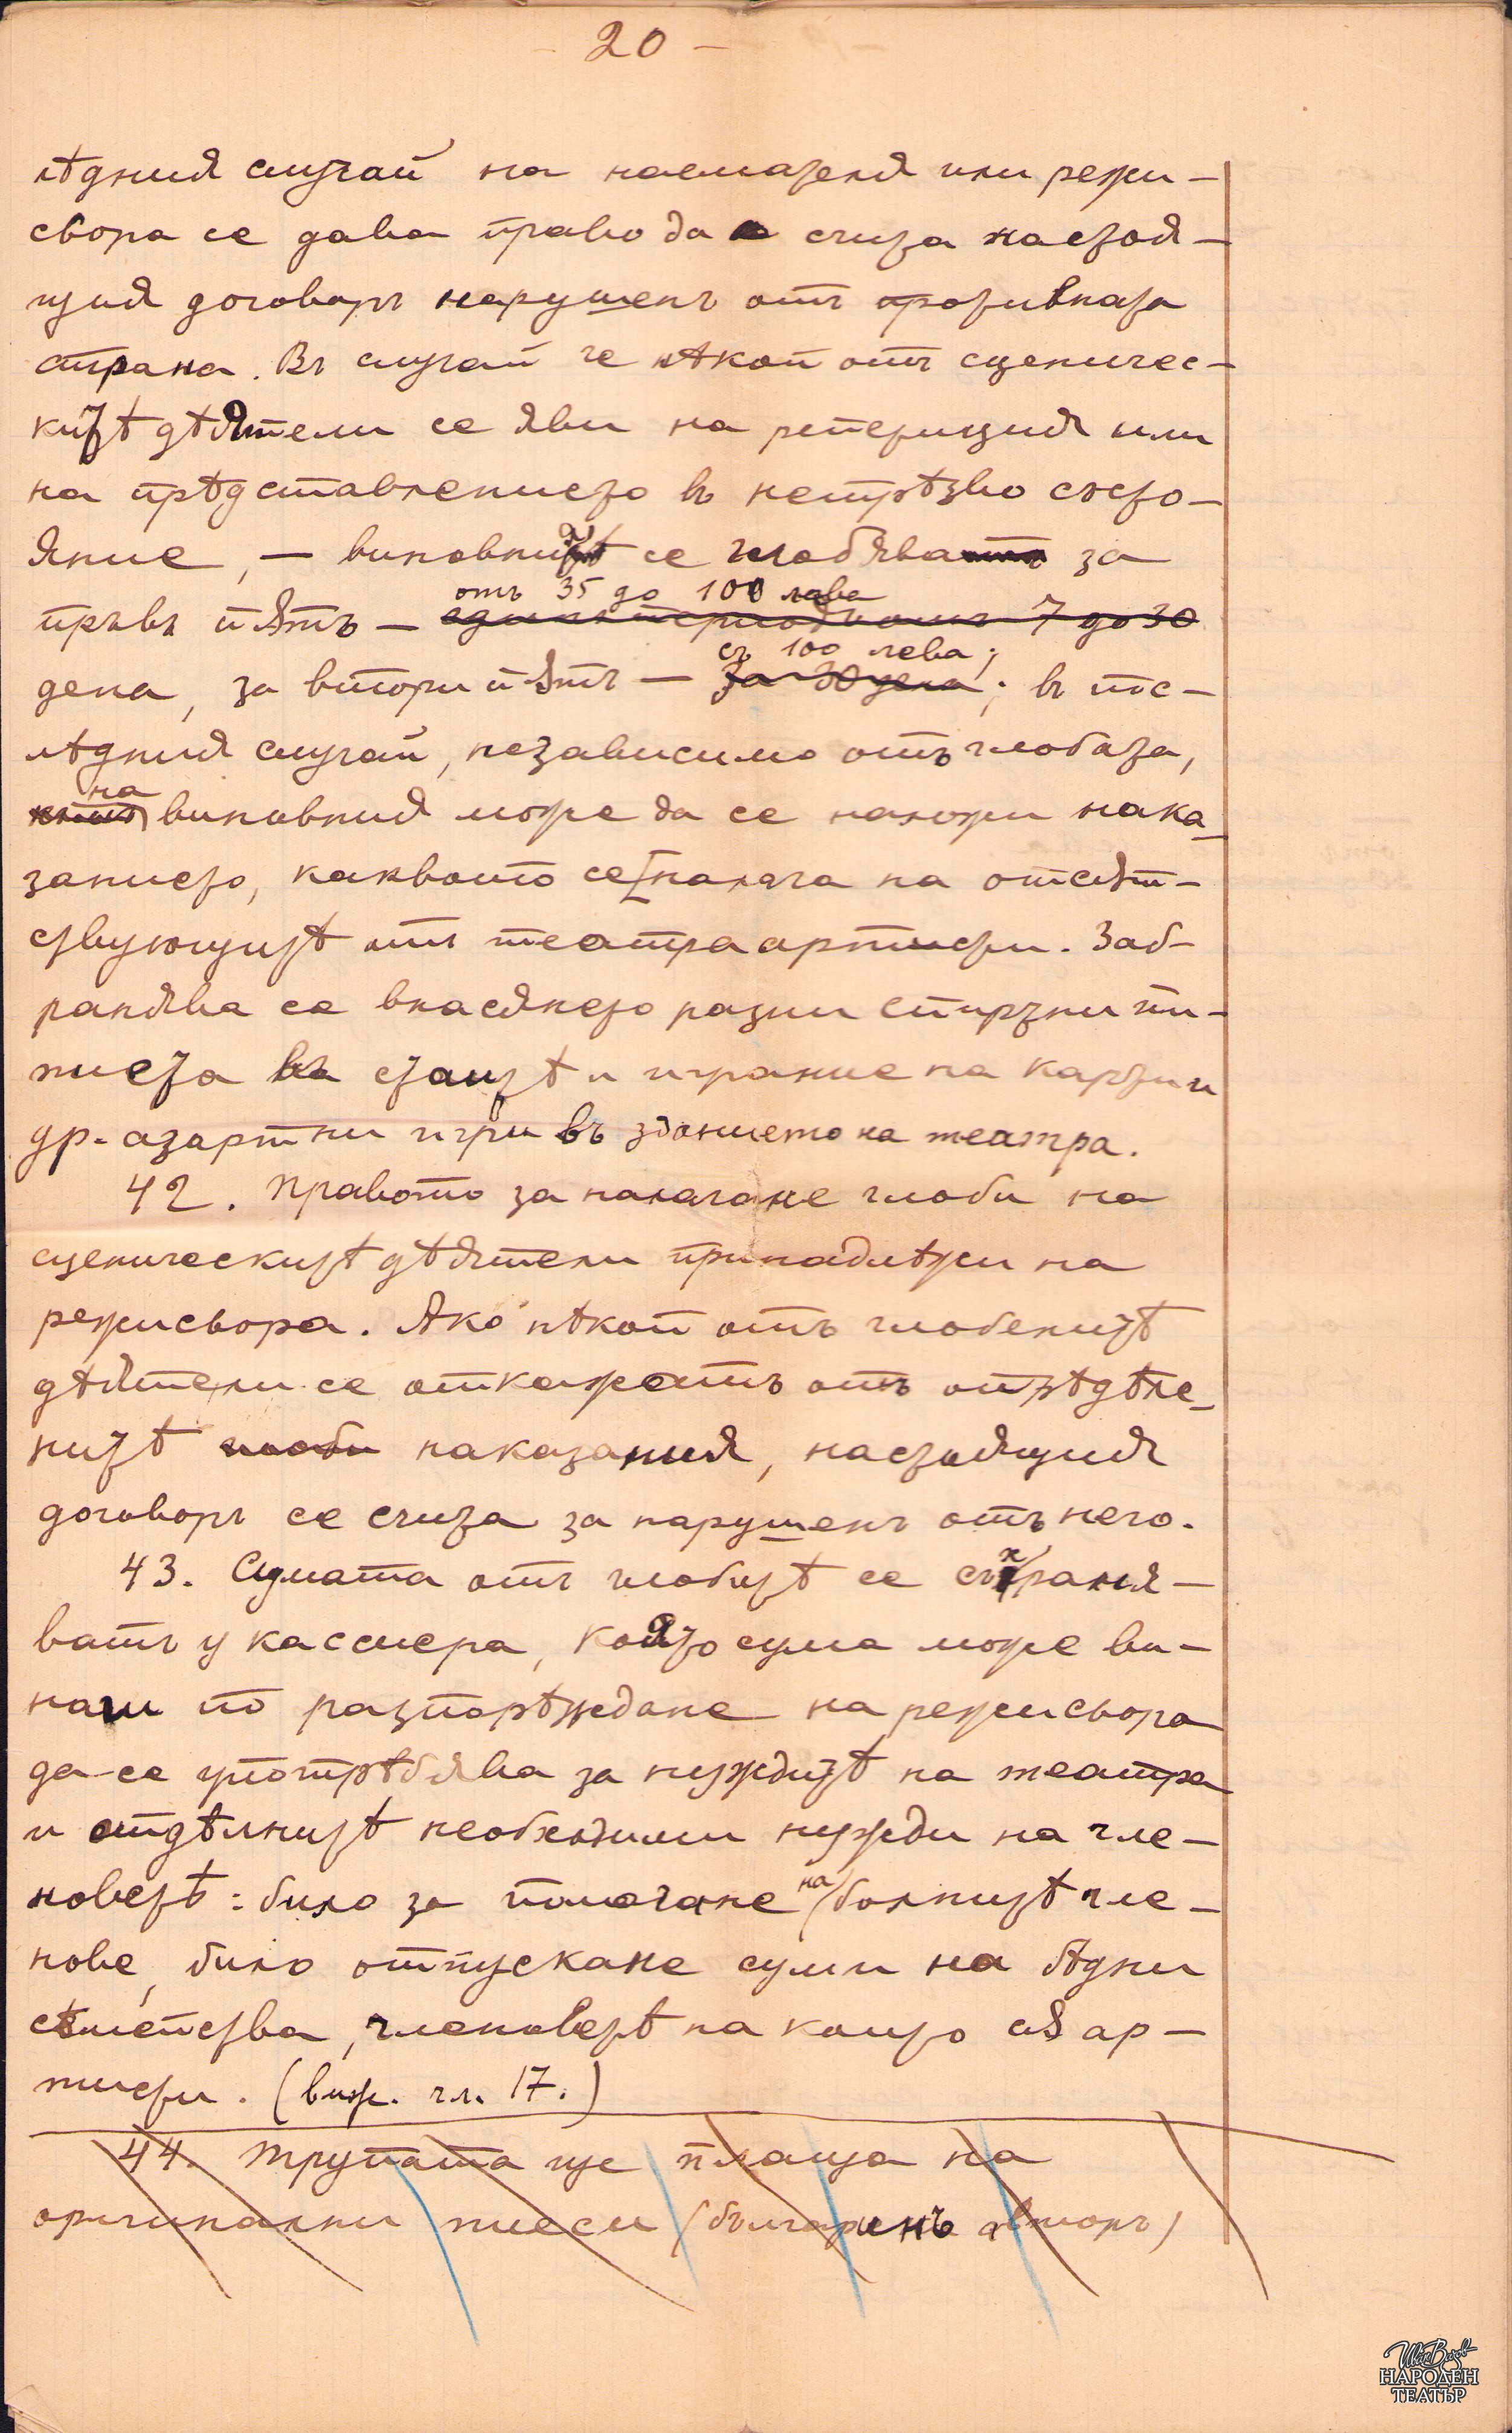 - 20 -
лѣдния случай на наемателя или режи-
сьора се дава право да счита настоя-
щия договоръ нарушенъ отъ противната
страна. Въ случай че нѣкой отъ сценичес-
китѣ дѣятели се яви на репетиция или
на прѣдставлението въ нетрѣзво състо-
яние, — виновния се глобява за
пръвъ пѫть — единъ периодъ отъ 7 до 30
отъ 35 до 100 лева
дена, за втори пѫть — за 30 дена; въ пос-
съ 100 лева;
лѣдния случай, независимо отъ глобата,
на виновния може да се наложи нака-
занието, каквото се налага на отсѫт-
ствующитѣ отъ театра артисти. Заб-
ранява се внасянето разни спиртни пи-
тиета въ стаитѣ и играние на карти и
др. азартни игри въ зданието на театра.
42. Правото за налагане глоби на
сценическитѣ дѣятели принадлѣжи на
режисьора. Ако нѣкой отъ глобенитѣ
дѣятели се откажатъ отъ опрѣдѣле-
нитѣ глоби наказания, настоящия
договоръ се счита за нарушенъ отъ него.
43. Сумата отъ глобитѣ се съхраня-
ватъ у кассиера, която сума може ви-
наги по разпорѣждане на режисьора
да се употрѣбява за нуждитѣ на театра
и отдѣлнитѣ необходими нужди на чле-
новетѣ: било за помагане на болнитѣ чле-
нове, било отпускане суми на бѣдни
сѣмейства, членоветѣ на които сѫ ар-
тисти. (виж. чл. 17.)
44. Трупата ще плаща на
оригинални пиеси (българинъ авторъ)
Ив Вазов
НАРОДЕН
ТЕАТЪР